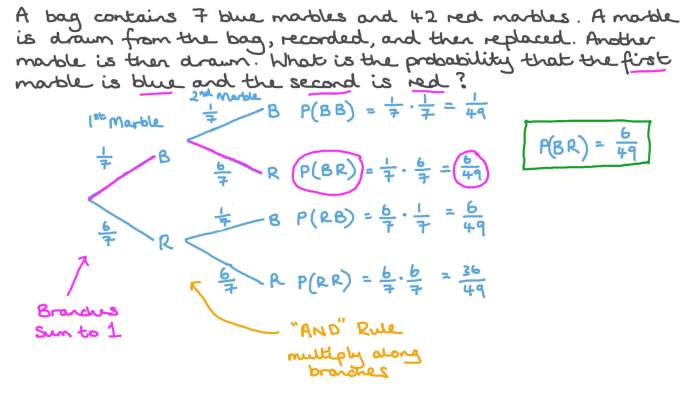 A bag contains 7 blue marbles and 42 red marbles. A marble
is drawn from the bag, recorded, and then replaced. Another
marble is then drawn. What is the probability that the first
marble is blue and the second is red?
1st Marble
2nd Marble
1/7 B P(BB) = 1/7 · 1/7 = 1/49
1/7 B
6/7 R P(BR) = 1/7 · 6/7 = 6/49
P(BR) = 6/49
1/7 B P(RB) = 6/7 · 1/7 = 6/49
6/7 R
6/7 R P(RR) = 6/7 · 6/7 = 36/49
Branches
Sum to 1
"AND" Rule
multiply along
branches